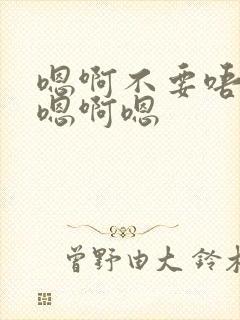 嗯啊不要唔
嗯啊嗯
曾野由大 鈴木